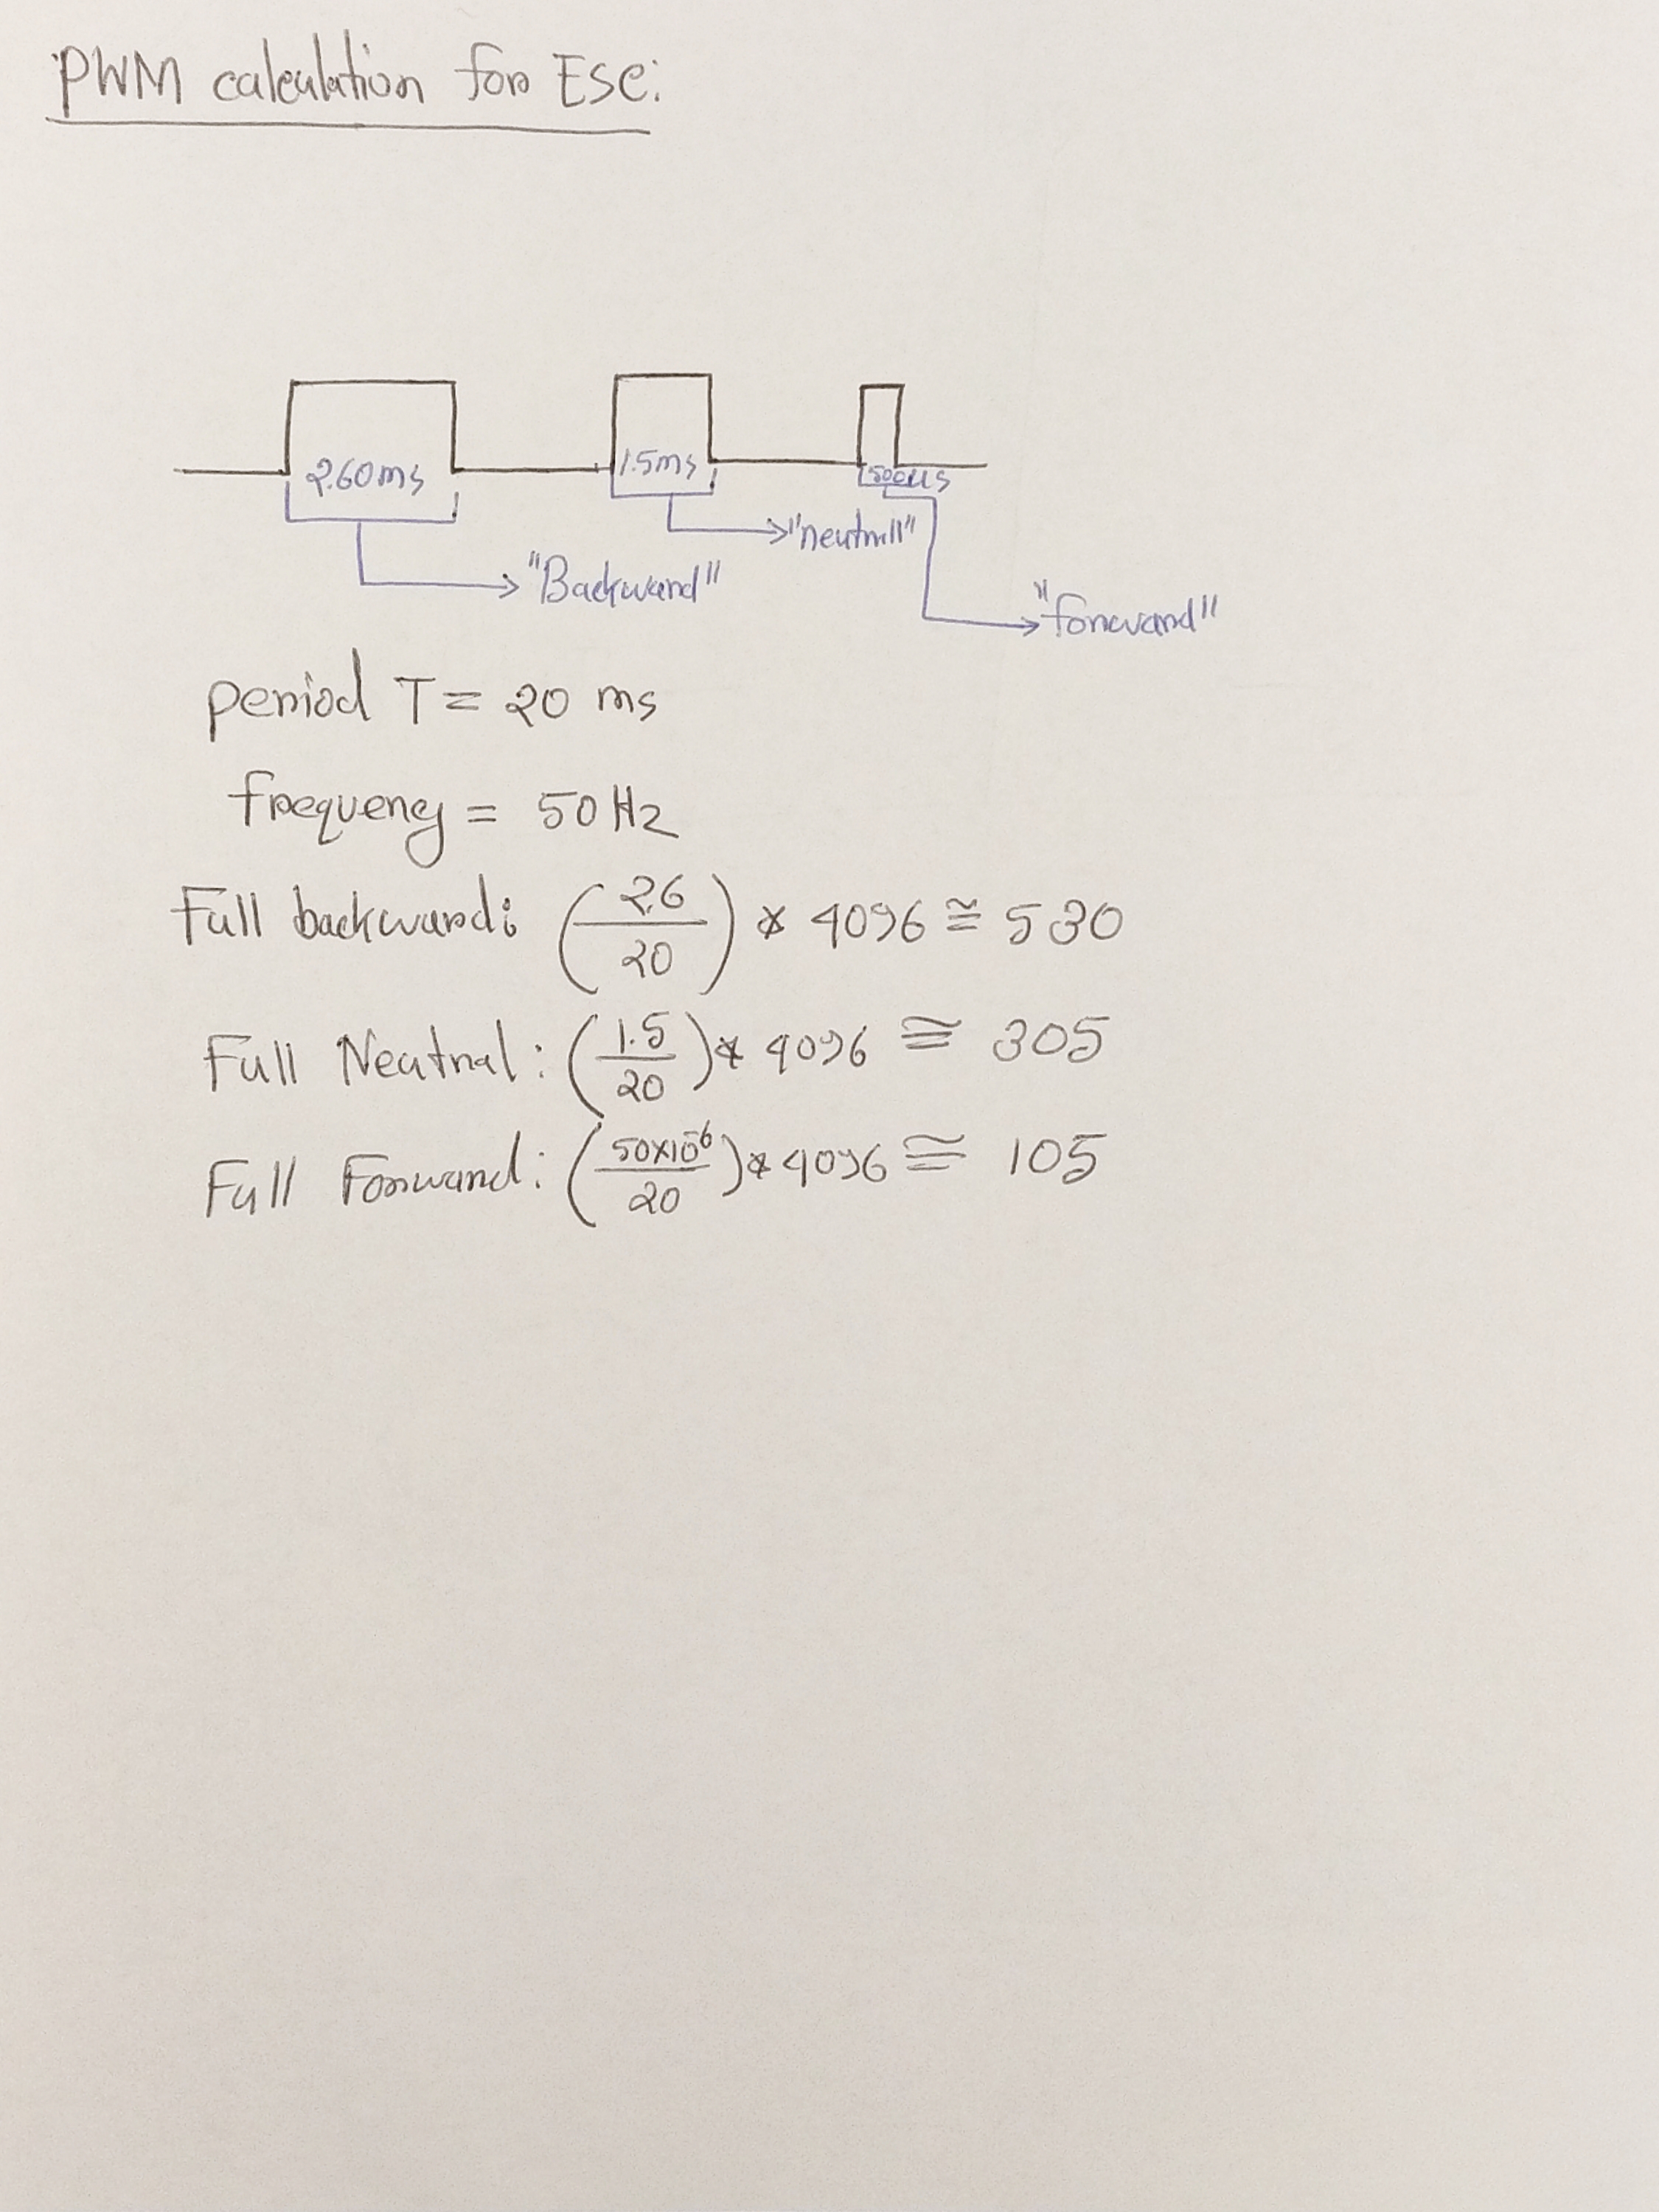 PWM calculation for ESC:
2.60ms 1.5ms 500us
"neutrall"
"Backward"
"forward"
period T = 20 ms
frequency = 50 Hz
Full backward: (2.6/20) * 4096 ≅ 530
Full Neutral: (1.5/20) * 4096 ≅ 305
Full Forward: (50×10⁻⁶/20) * 4096 ≅ 105